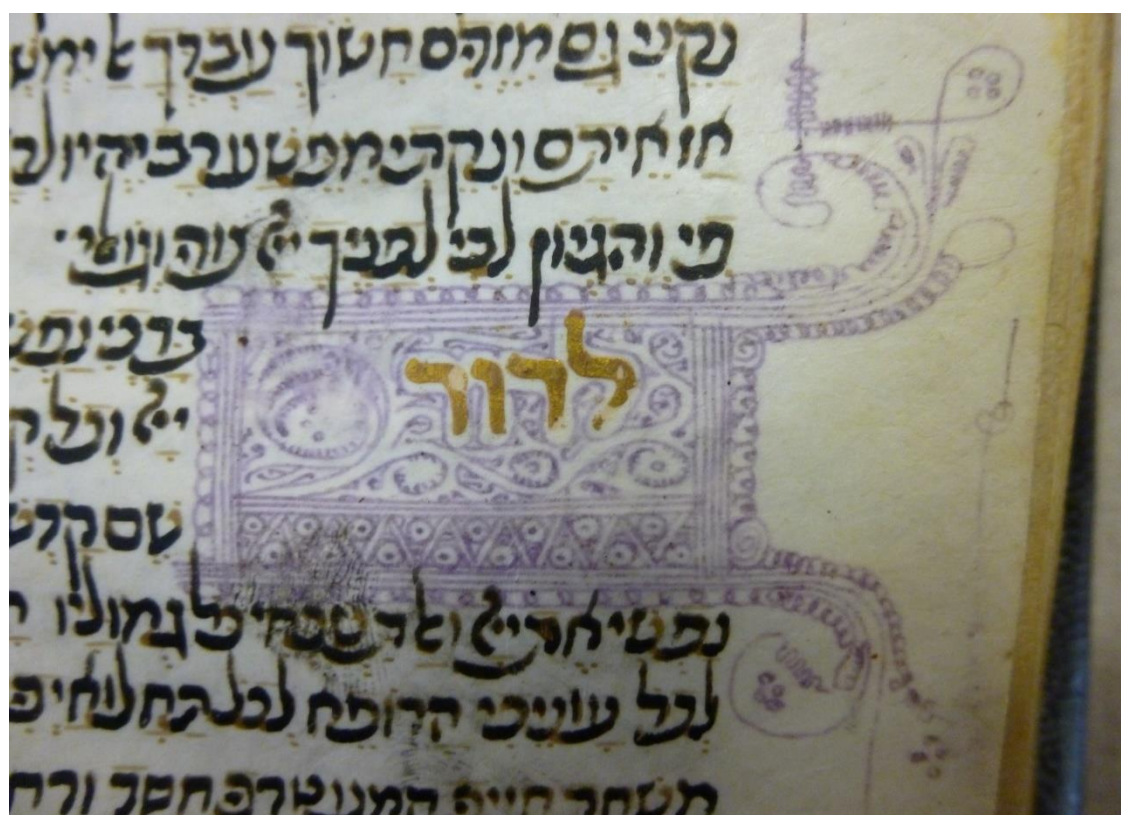 נקני גם מזדים חשוך עבדך אל ימש
אז איתם ונקיתי מפשע רב יהיו לר
פי והגיון לבי לפניך יי צורי וגואלי
לדוד ברכי נפש
יי וכל ק
שם קדש
נפשי את יי ואל תשכחי כל גמוליו ה
לכל עוניכי הרופא לכל תחלואיכ
משחת חייכי המעטרכי חסד ורח